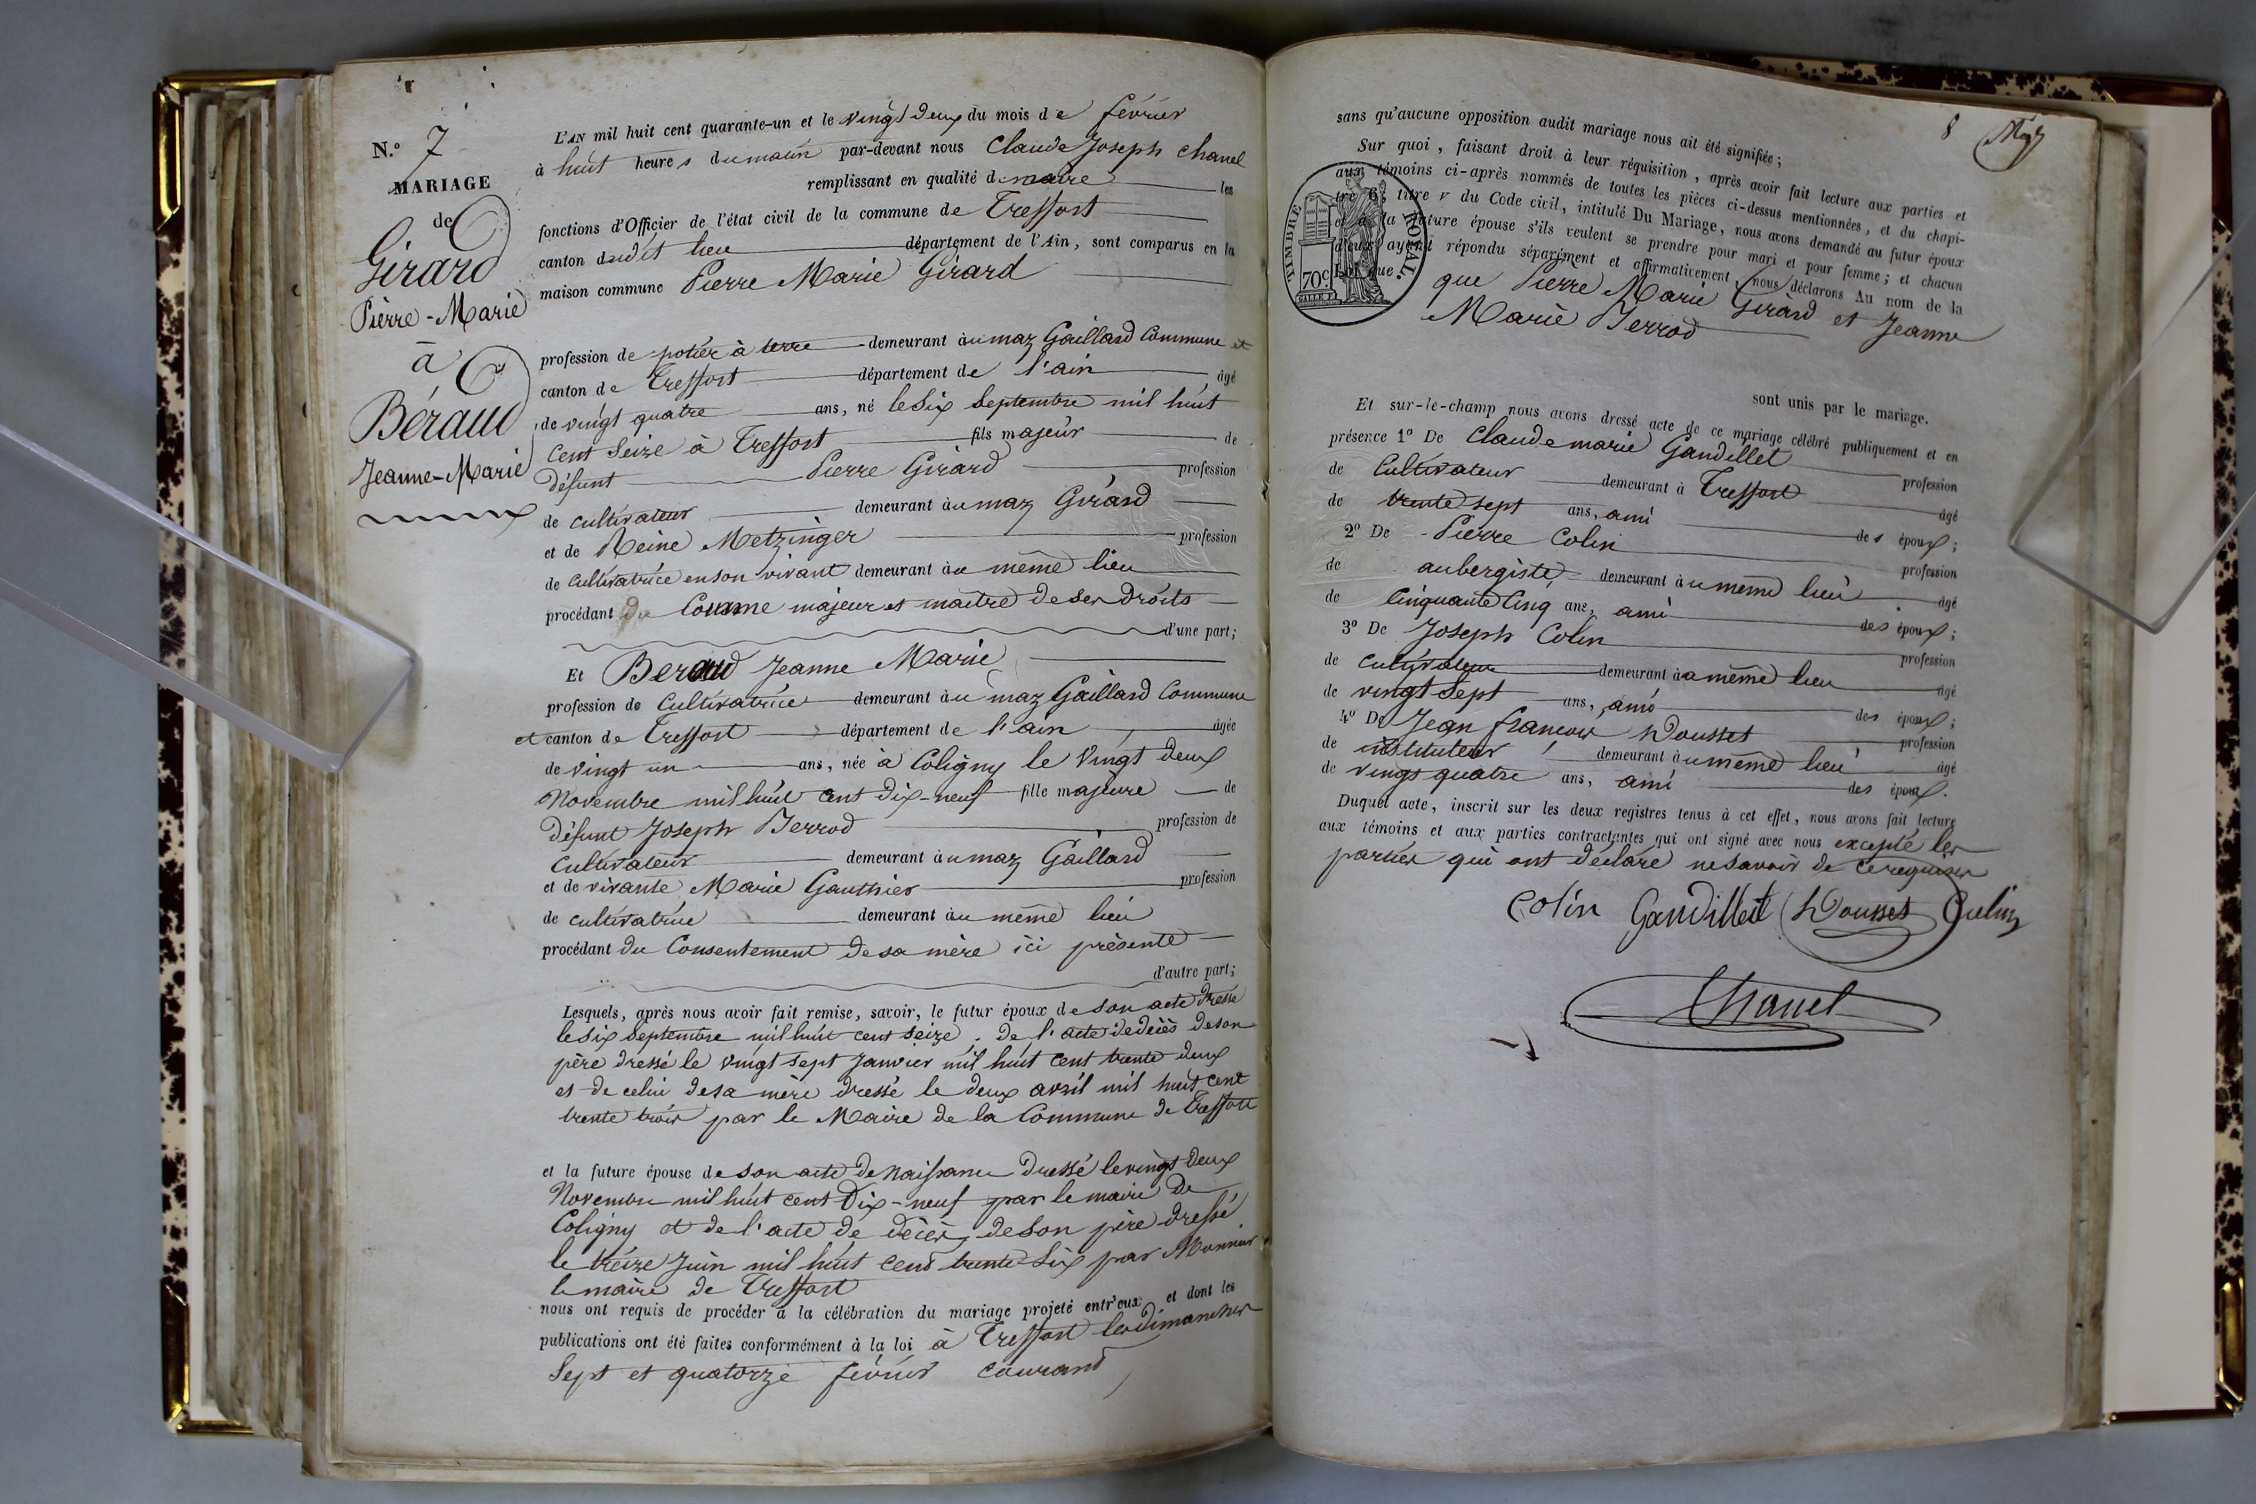 N.° 7
MARIAGE
de
Girard
Pierre-Marie
à
Béraud
Jeanne-Marie
L'AN mil huit cent quarante-un et le vingt deux du mois de février
à huit heures du matin par-devant nous Claude Joseph Chanel
remplissant en qualité de maire les
fonctions d'Officier de l'état civil de la commune de Treffort
canton dudit lieu département de l'Ain, sont comparus en la
maison commune Pierre Marie Girard
profession de potier à terre demeurant au maz Gaillard Commune et
canton de Treffort département de l'ain âgé
de vingt quatre ans, né le six Septembre mil huit
cent Seize à Treffort fils majeur de
défunt Pierre Girard profession
de cultivateur demeurant au maz Girard
et de Reine Metzinger profession
de cultivatrice en son vivant demeurant au même lieu
procédant Comme majeur et maître de ses droits
d'une part;
Et Beraud Jeanne Marie
profession de Cultivatrice demeurant au maz Gaillard Commune
et canton de Treffort département de l'ain âgée
de vingt un ans, née à Coligny le Vingt deux
Novembre mil huit cent dix-neuf fille majeure de
défunt Joseph Berrod profession de
Cultivateur demeurant au maz Gaillard
et de vivante Marie Gauthier profession
de cultivatrice demeurant au même lieu
procédant du Consentement de sa mère ici présente
d'autre part;
Lesquels, après nous avoir fait remise, savoir, le futur époux de son acte dressé
le six septembre mil huit cent seize, de l'acte de décès de son
père dressé le vingt sept Janvier mil huit cent trente deux
et de celui de sa mère dressé le deux avril mil huit cent
trente trois par le Maire de la Commune de Treffort
et la future épouse de son acte de naissance dressé le vingt deux
Novembre mil huit cent Dix-neuf par le maire de
Coligny et de l'acte de décès de son père dressé
le treize Juin mil huit cent trente six par Monsieur
le maire de Treffort
nous ont requis de procéder à la célébration du mariage projeté entr'eux et dont les
publications ont été faites conformément à la loi à Treffort les dimanches
Sept et quatorze février courant
8
sans qu'aucune opposition audit mariage nous ait été signifiée;
Sur quoi, faisant droit à leur réquisition, après avoir fait lecture aux parties et
aux témoins ci-après nommés de toutes les pièces ci-dessus mentionnées, et du chapi-
tre 6, titre v du Code civil, intitulé Du Mariage, nous avons demandé au futur époux
et à la future épouse s'ils veulent se prendre pour mari et pour femme; et chacun
d'eux ayant répondu séparément et affirmativement, nous déclarons Au nom de la
Loi que
TIMBRE ROYAL.
70c.
que Pierre Marie Girard et Jeanne
Marie Berrod
sont unis par le mariage.
Et sur-le-champ nous avons dressé acte de ce mariage célébré publiquement et en
présence 1° De Claude marie Gandillet profession
de Cultivateur demeurant à Treffort âgé
de trente sept ans, ami des époux;
2° De Pierre Colin profession
de aubergiste, demeurant au même lieu âgé
de Cinquante Cinq ans, ami des époux;
3° De Joseph Colin profession
de Cultivateur demeurant au même lieu âgé
de vingt Sept ans, ami des époux;
4° De Jean françois Dousset profession
de instituteur demeurant au même lieu âgé
de vingt quatre ans, ami des époux.
Duquel acte, inscrit sur les deux registres tenus à cet effet, nous avons fait lecture
aux témoins et aux parties contractantes qui ont signé avec nous excepté les
parties qui ont déclaré ne savoir de ce requises
Colin Gandillet Dousset Colin
Chanel